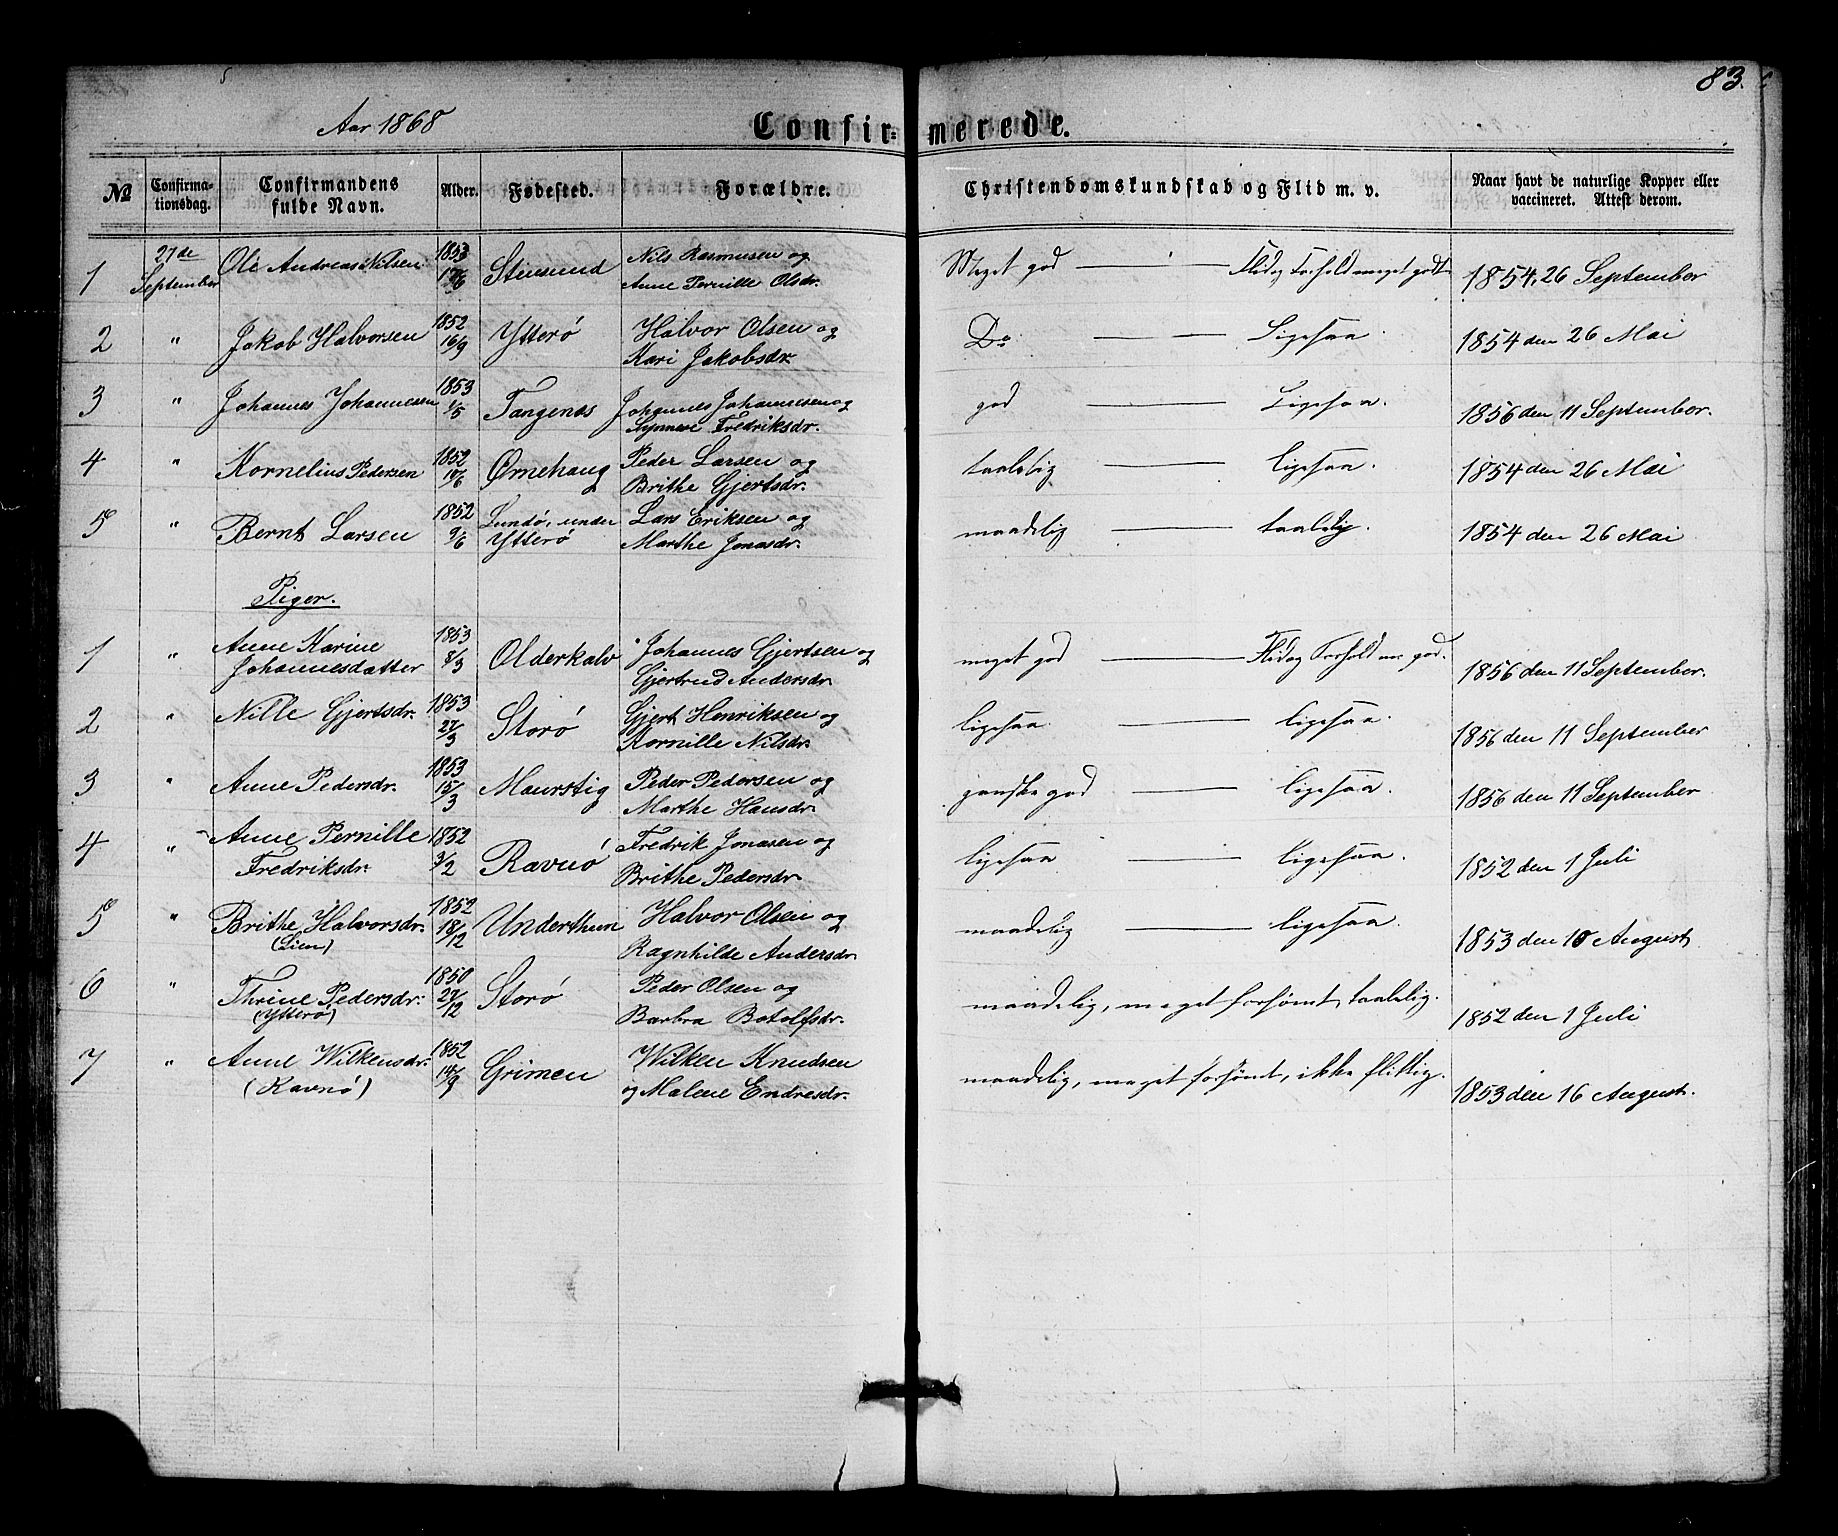 83.
Aar 1868
Confirmerede.
№ Confirmationsdag. Confirmandens fulde Navn. Alder. Fødested. Forældre. Christendomskundskab og Flid m. v. Naar havt de naturlige Kopper eller vaccineret. Attest derom.
1 27de September Ole Andreas Nilsen 1853 17/6 Stensund Nils Rasmusen og Anne Pernille Olsdr. Meget god — Flid og Forhold meget godt 1854, 26 September
2 " Jakob Halvorsen 1852 16/9 Ytterö Halvor Olsen og Kari Jakobsdr. Do — Ligesaa. 1854 den 26 Mai
3 " Johannes Johannesen 1853 1/5 Tangenes Johannes Johannesen og Synneve Fredriksdr. god — Ligesaa. 1856 den 11 September.
4 " Kornelius Pedersen 1852 17/6 Ørnehaug Peder Larsen og Brithe Gjertsdr. taalelig — ligesaa. 1854 den 26 Mai
5 " Bernt Larsen 1852 9/6 Lundö, under Ytterö Lars Eriksen og Marthe Jonasdr. maadelig — taalelig. 1854 den 26 Mai
Piger.
1 " Anne Karine Johannesdatter 1853 8/3 Olderkalv Johannes Gjertsen og Gjertrud Andersdr. meget god — Flid og Forhold me god. 1856 den 11 September.
2 " Nille Gjertsdr. 1853 27/3 Storö Gjert Henriksen og Kornille Nilsdr. ligesaa — ligesaa. 1856 den 11 September
3 " Anne Pedersdr. 1853 15/3 Maurstig Peder Pedersen og Marthe Hansdr. ganske god — ligesaa. 1856 den 11 September
4 " Anne Pernille Fredriksdr. 1852 3/2 Ravnö Fredrik Jonasen og Brithe Pedersdr. ligesaa — ligesaa. 1852 den 1 Juli
5 " Brithe Halvorsdr. (Lien) 1852 18/12 Underthun Halvor Olsen og Ragnhilde Andersdr. maadelig — ligesaa. 1853 den 10 August
6 " Thrine Pedersdr. (Ytterö) 1850 27/12 Storö Peder Olsen og Barbra Botolfsdr. maadelig, meget forsømt, taalelig. 1852 den 1 Juli
7 " Anne Wilkensdr. (Ravnö) 1852 14/9 Grimen Wilken Knudsen og Malene Endresdr. maadelig, meget forsømt, ikke flittig. 1853 den 16 August.